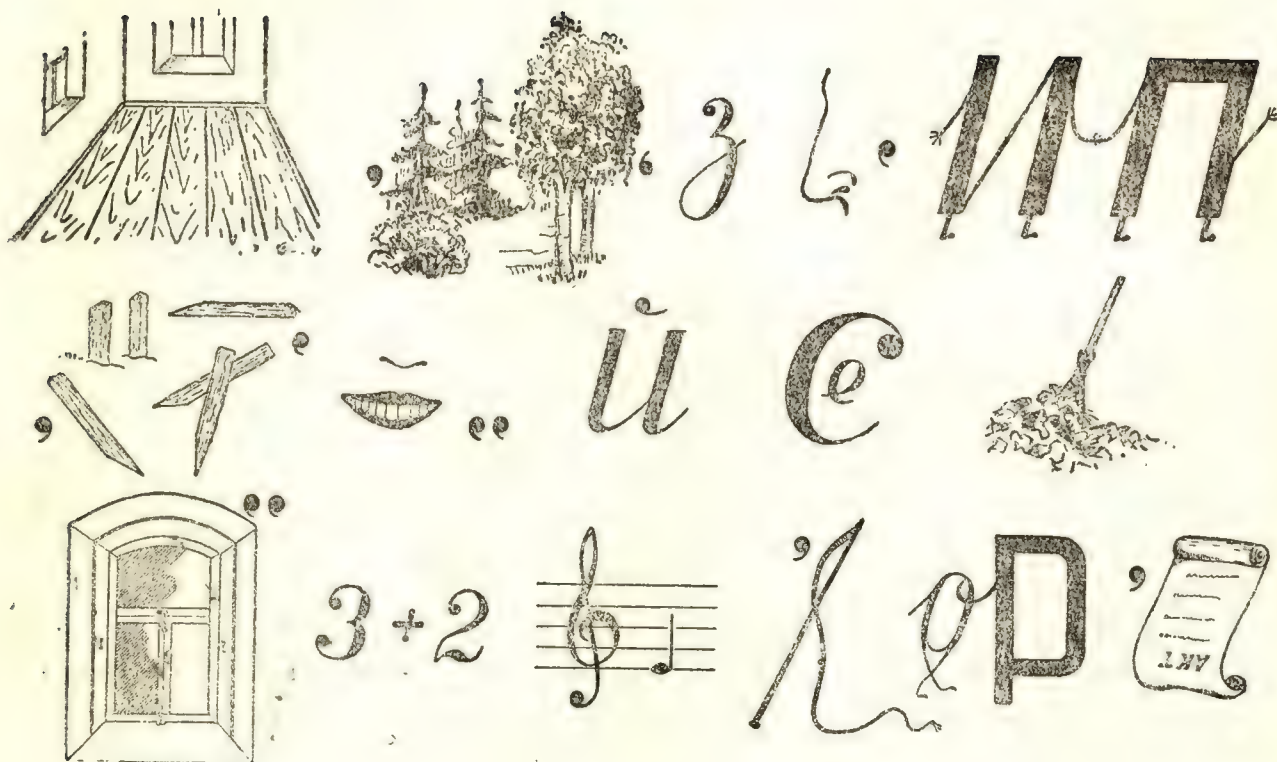 , , з , ИП
, , ,, й Се
,, 3+2 , оР , АКТ